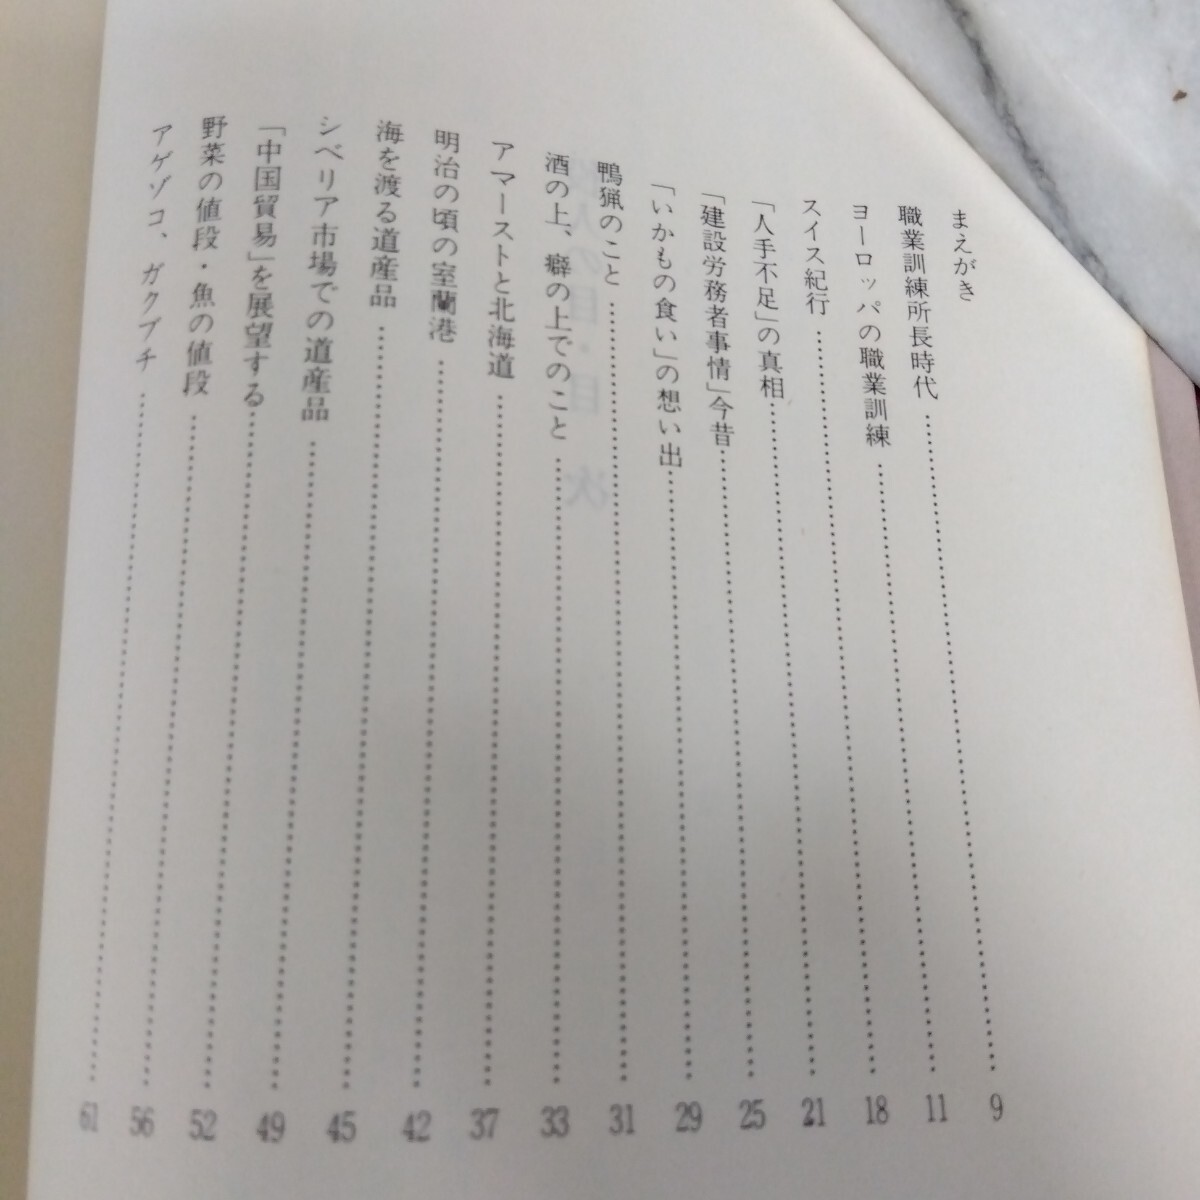 まえがき
職業訓練所長時代……………………9
ヨーロッパの職業訓練……………………11
スイス紀行……………………18
「人手不足」の真相……………………21
「建設労務者事情」今昔……………………25
「いかもの食い」の想い出……………………29
鴨猟のこと……………………31
酒の上、癖の上でのこと……………………33
アマーストと北海道……………………37
明治の頃の室蘭港……………………42
海を渡る道産品……………………45
シベリア市場での道産品……………………49
「中国貿易」を展望する……………………52
野菜の値段・魚の値段……………………56
アゲゾコ、ガクブチ……………………61